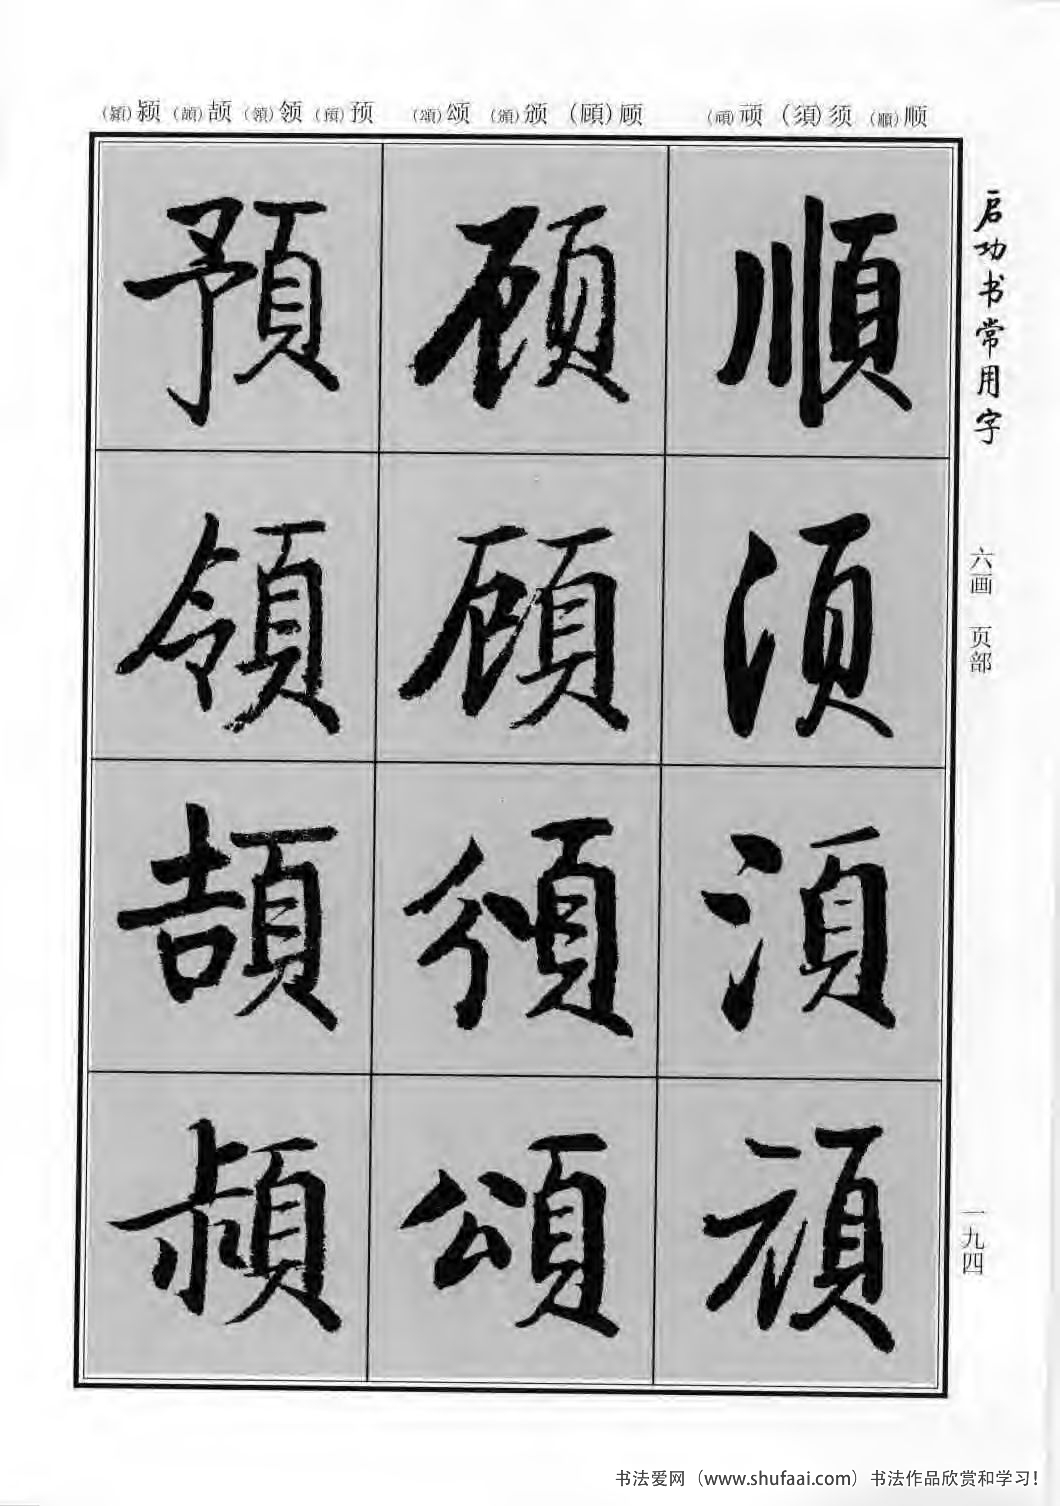 (潁)颍 (頡)颉 (領)领 (預)预 (頌)颂 (頒)颁 (頋)顾 (頑)顽 (須)须 (順)顺
启功书常用字
六画 页部
一九四
順須須頑
頋頋頒頌
預領頡潁
书法爱网（www.shufaai.com）书法作品欣赏和学习！